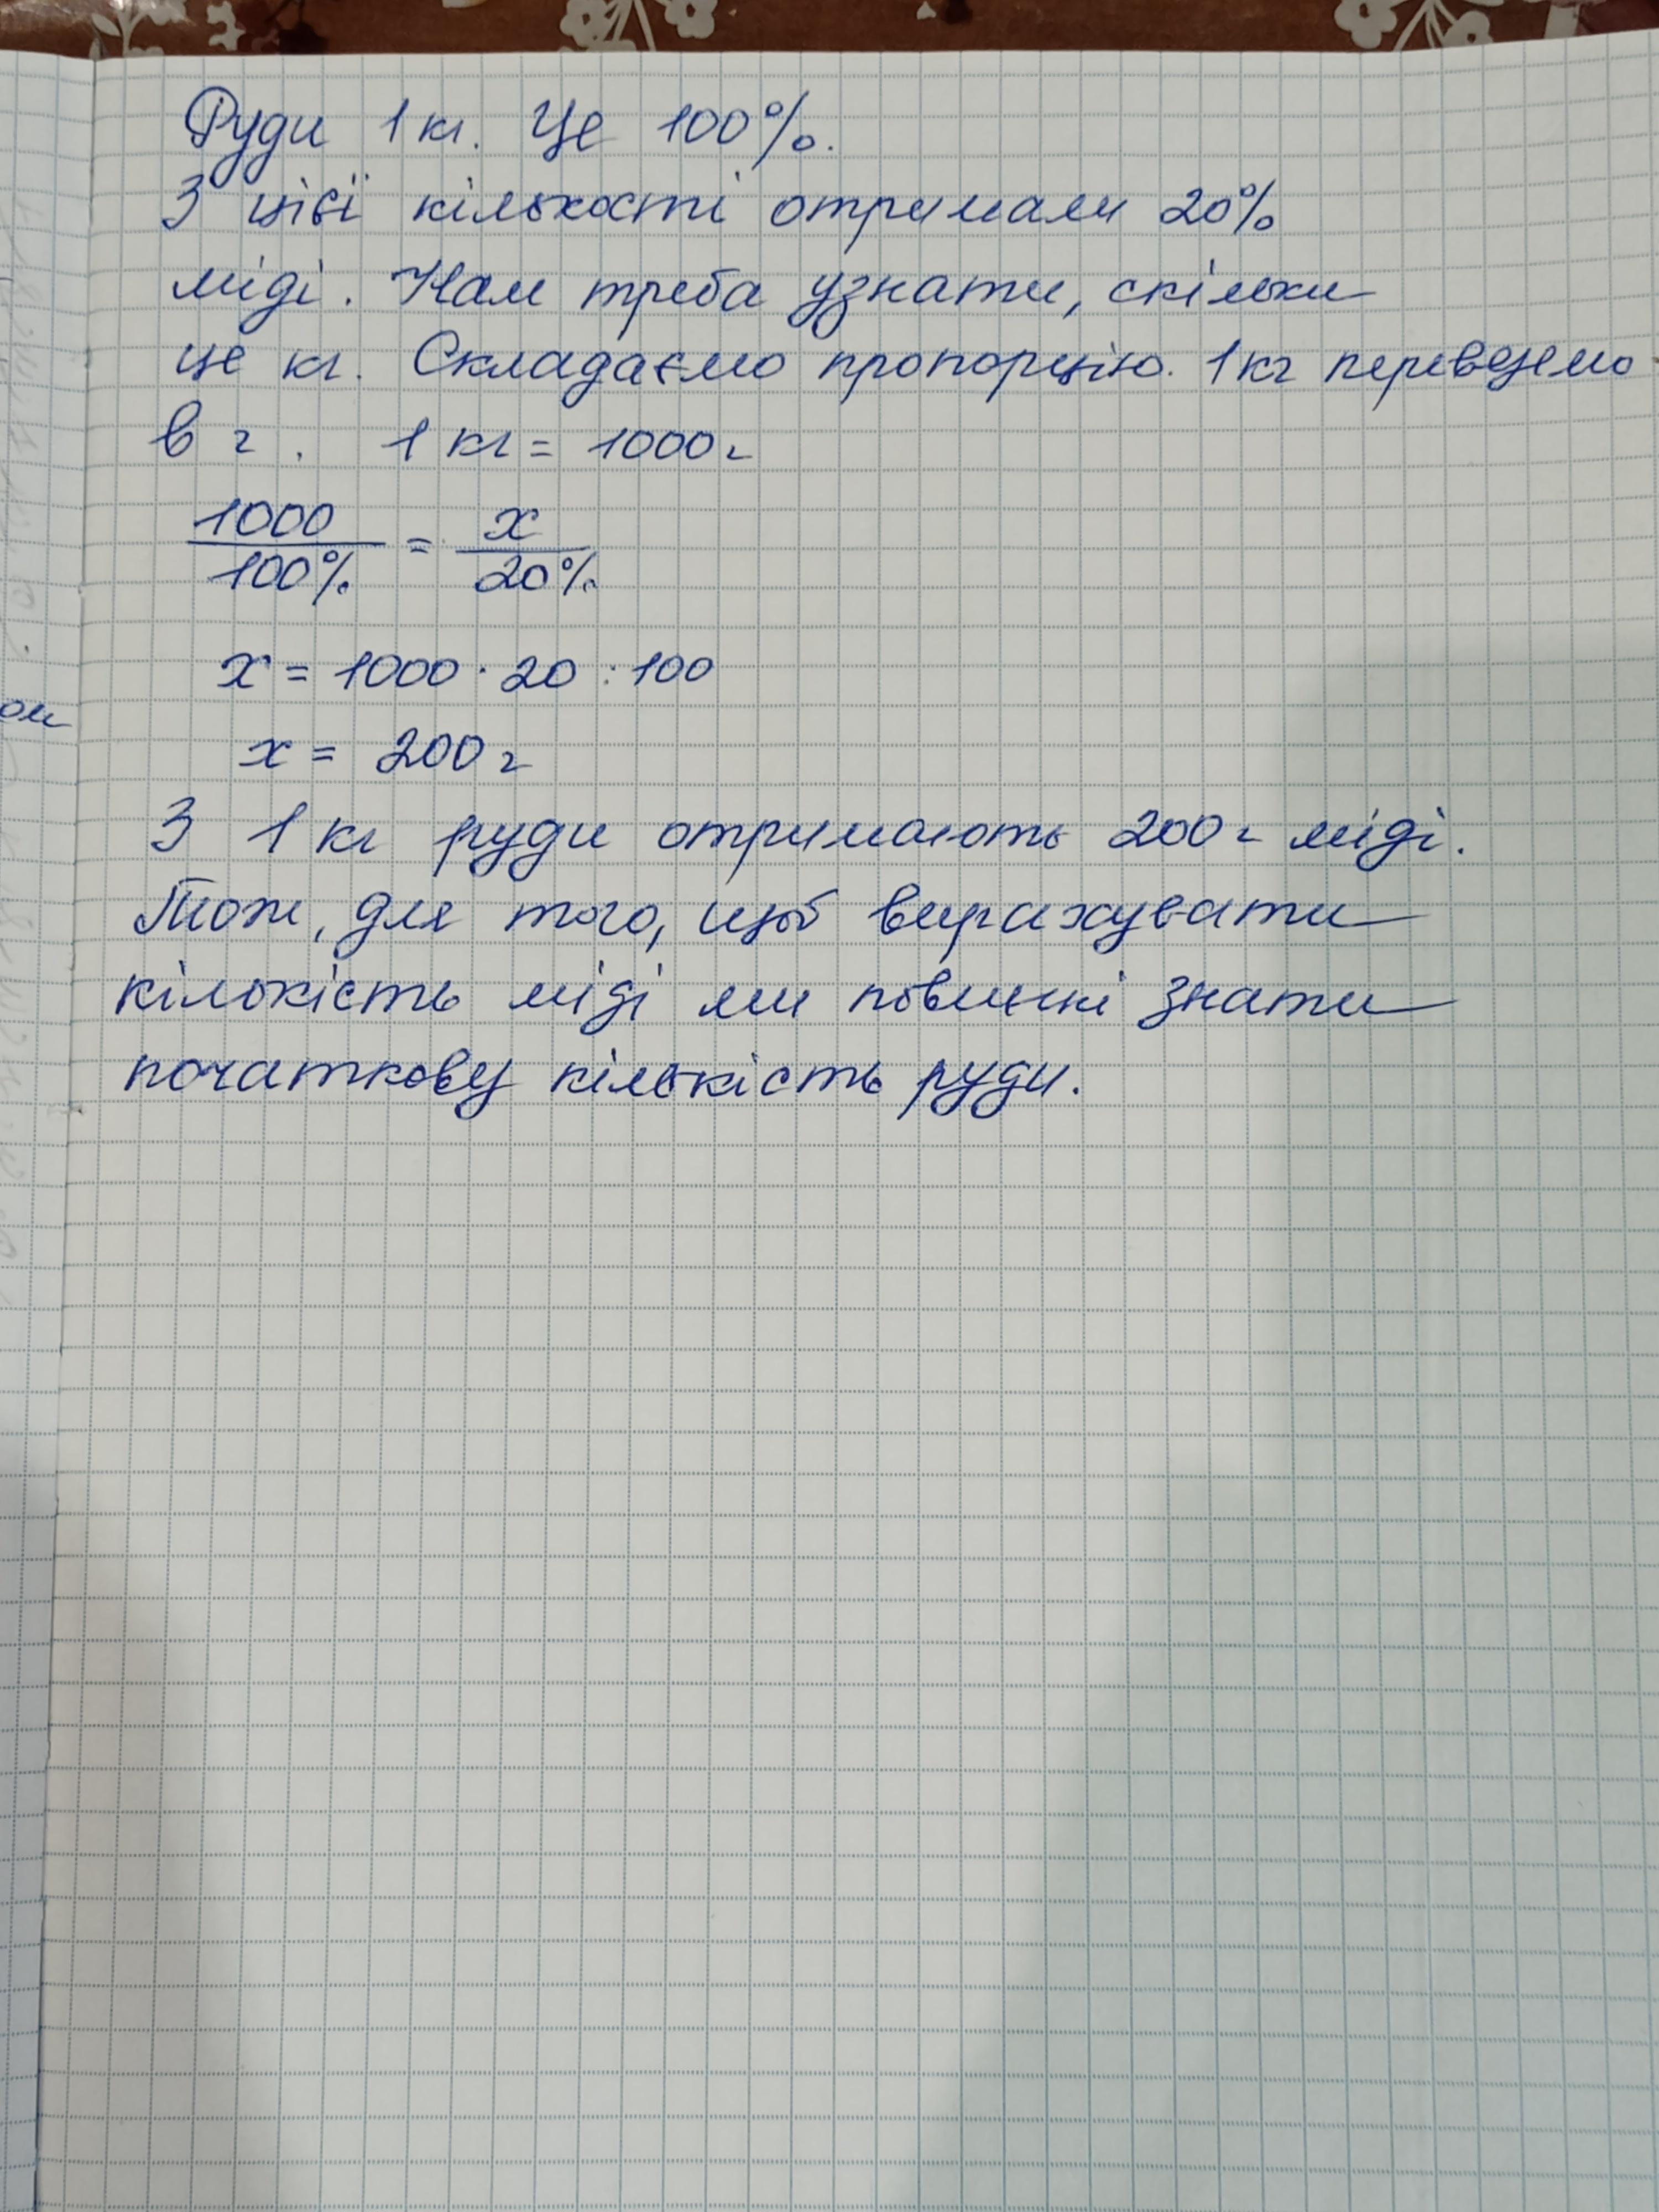 Руди 1 кг. Це 100%.
З цієї кількості отримали 20%
міді. Нам треба узнати, скільки
це кг. Складаємо пропорцію. 1 кг переведемо
в г. 1 кг = 1000 г
1000 / 100% = x / 20%
x = 1000 · 20 : 100
ом
x = 200 г
З 1 кг руди отримають 200 г міді.
Тож, для того, щоб вирахувати
кількість міді ми повинні знати
початкову кількість руди.